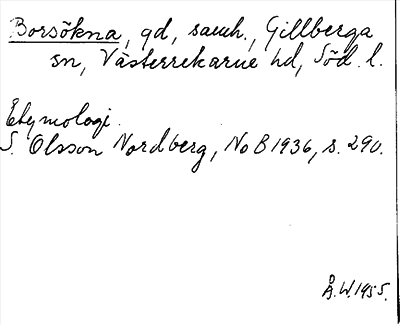 Borsökna, gd, samh., Gillberga
sn, Västerrekarne hd, Söd. l.
Etymologi.
S. Olsson Nordberg, NoB 1936, s. 290.
Å.W. 1955.